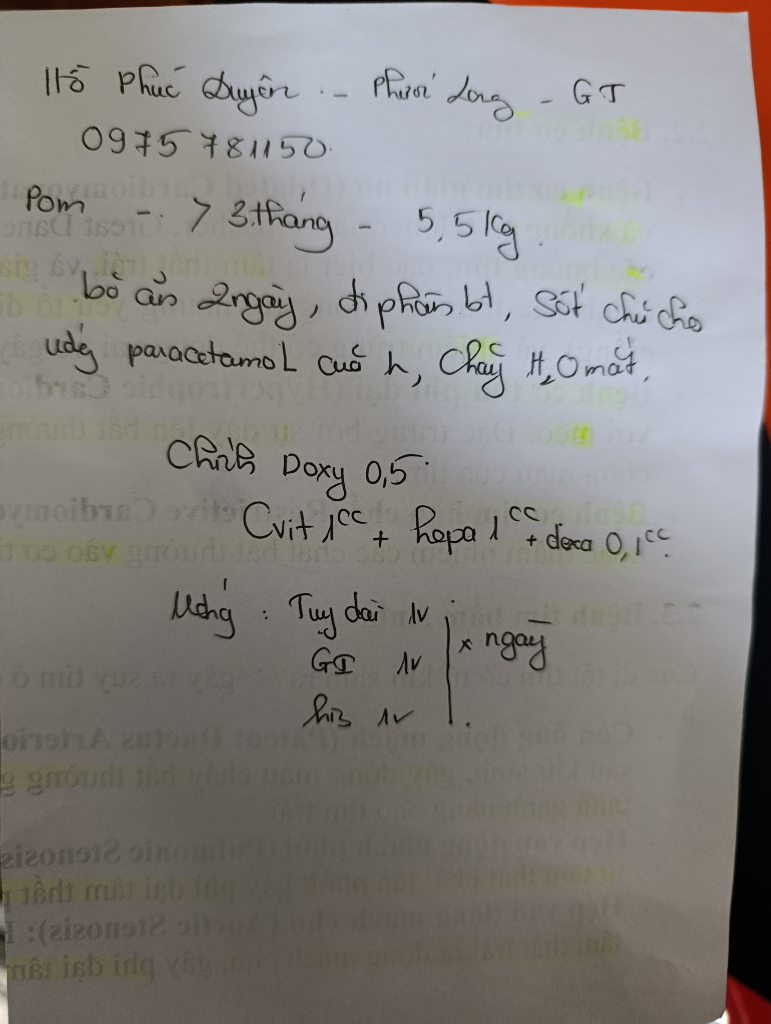 Hồ Phúc Duyên - Phước Long - GT
0975 781150
Pom - > 3 tháng - 5,5 Kg.
bỏ ăn 2 ngày, đi phân bt, sốt chủ cho
uống paracetamol cuả h, chảy H₂O mắt.
Chích Doxy 0,5
Cvit 1cc + hepa 1cc + dexa 0,1cc.
Uống : Tuy dài 1v
GI 1v x ngày
his 1v